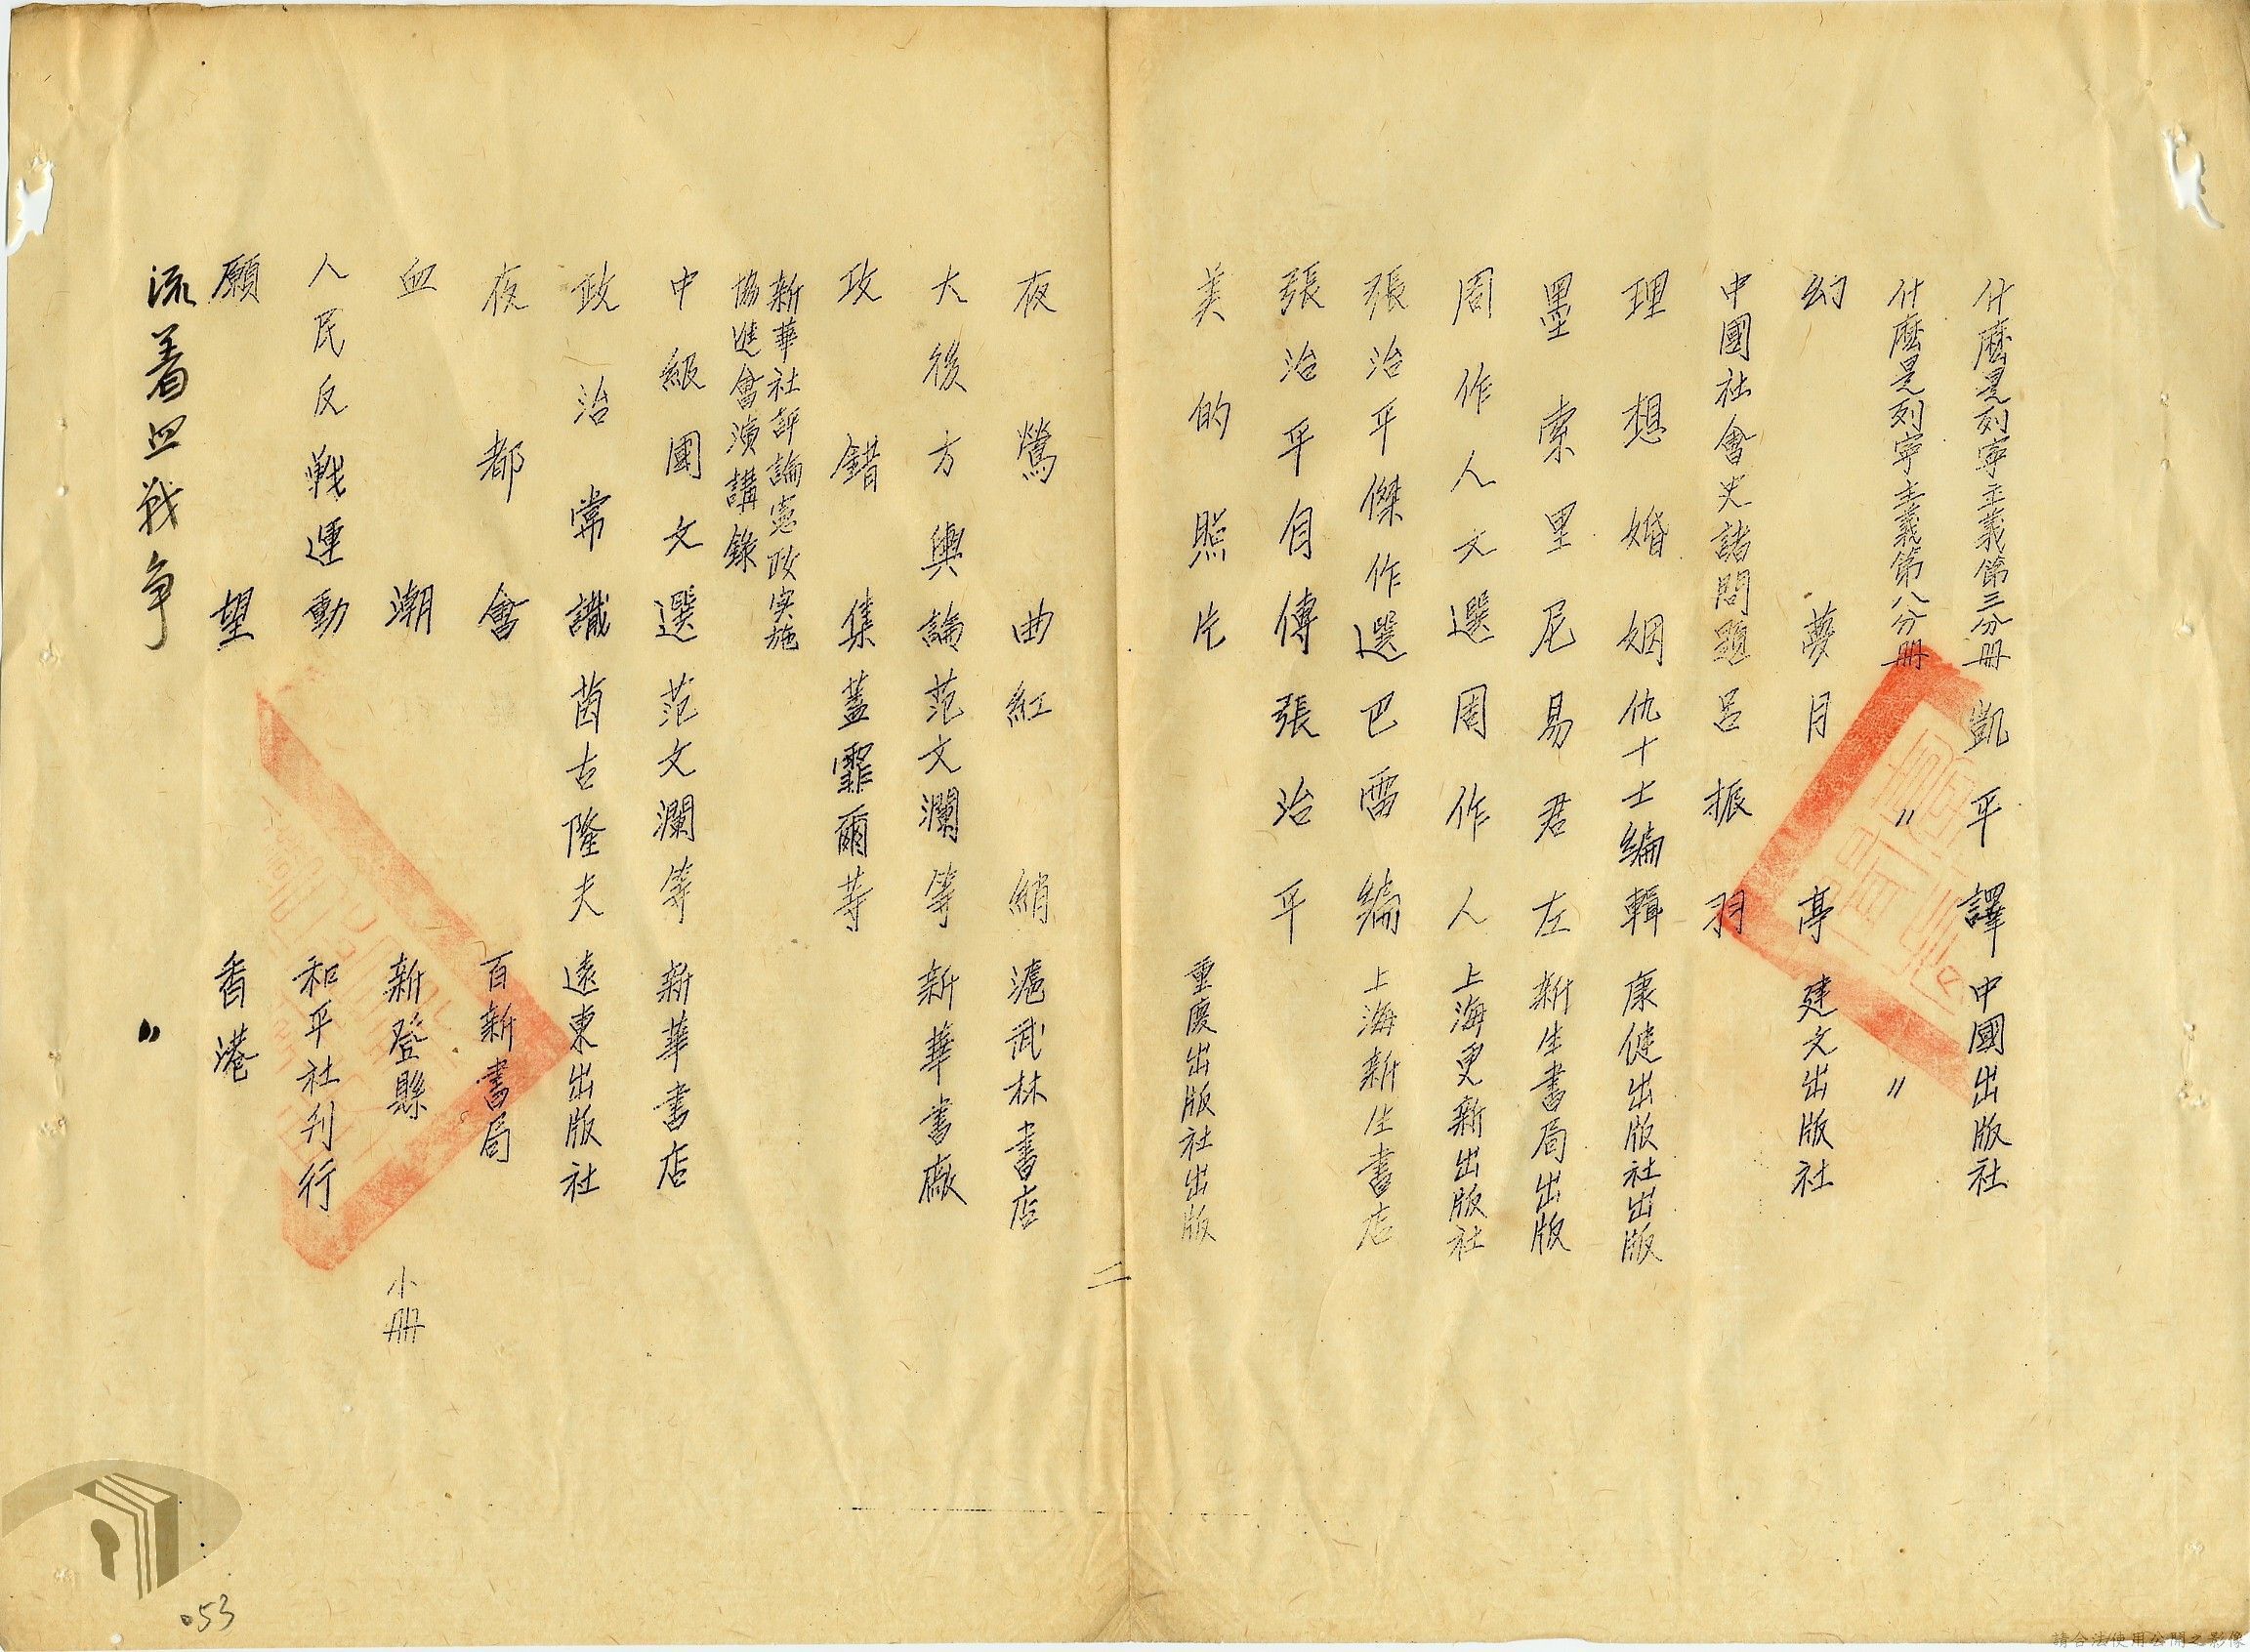 什麼是列寧主義第三分冊 凱平譯 中國出版社
什麼是列寧主義第八分冊 〃 〃
幻夢 月亭 建文出版社
中國社會史諸問題 呂振羽
理想婚姻 仇十士編輯 康健出版社出版
墨索里尼 易君左 新生書局出版
周作人文選 周作人 上海更新出版社
張治平傑作選 巴雷編 上海新生書店
張治平自傳 張治平
美的照片 重慶出版社出版
二
夜鶯曲 紅綃 滬武林書店
大後方輿論 范文瀾等 新華書廠
攻錯集 蓋霏爾等
新華社評論憲政実施
協進會演講錄
中級國文選 范文瀾等 新華書店
政治常識 茵古隆夫 遠東出版社
夜都會 百新書局
血潮 新登縣 小冊
人民反戰運動 和平社刋行
願望 香港
流着血战争 〃
053
請合法使用公開之影像